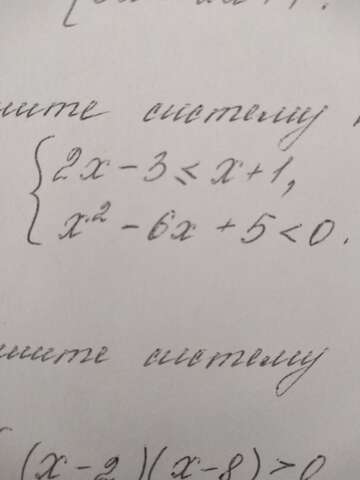 шите систему
{2x - 3 ≤ x + 1,
x² - 6x + 5 < 0.
шите систему
(x - 2)(x - 8) > 0